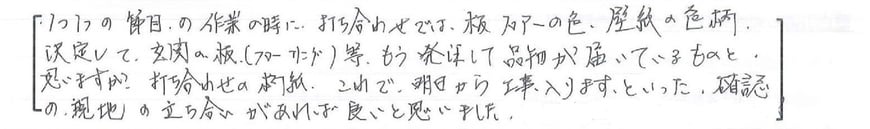 1つ1つの節目の作業の時に、打ち合わせでは、板フロアーの色、壁紙の色柄、
決定して、玄関の板、(フローリング)等、もう発注して品物が届いているものと、
思いますが? 打ち合わせの 用紙、これで、明日から工事、入ります、といった、確認
の、現地の立ち合いがあれば良いと思いました。